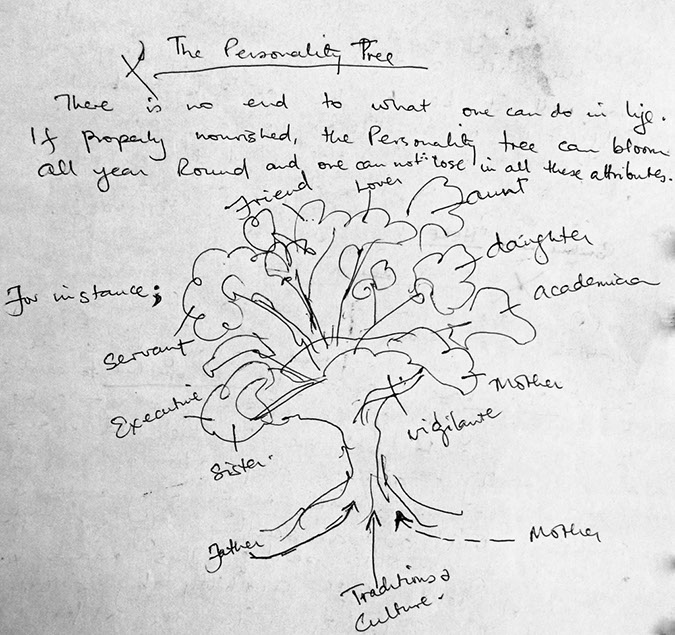 The Personality Tree
There is no end to what one can do in life.
If properly nourished, the Personality tree can bloom
all year Round and one can not lose in all these attributes.
Friend
Lover
aunt
daughter
For instance;
academician
servant
Mother
Executive
vigilante
Sister.
Father
Mother
Traditions &
Culture.